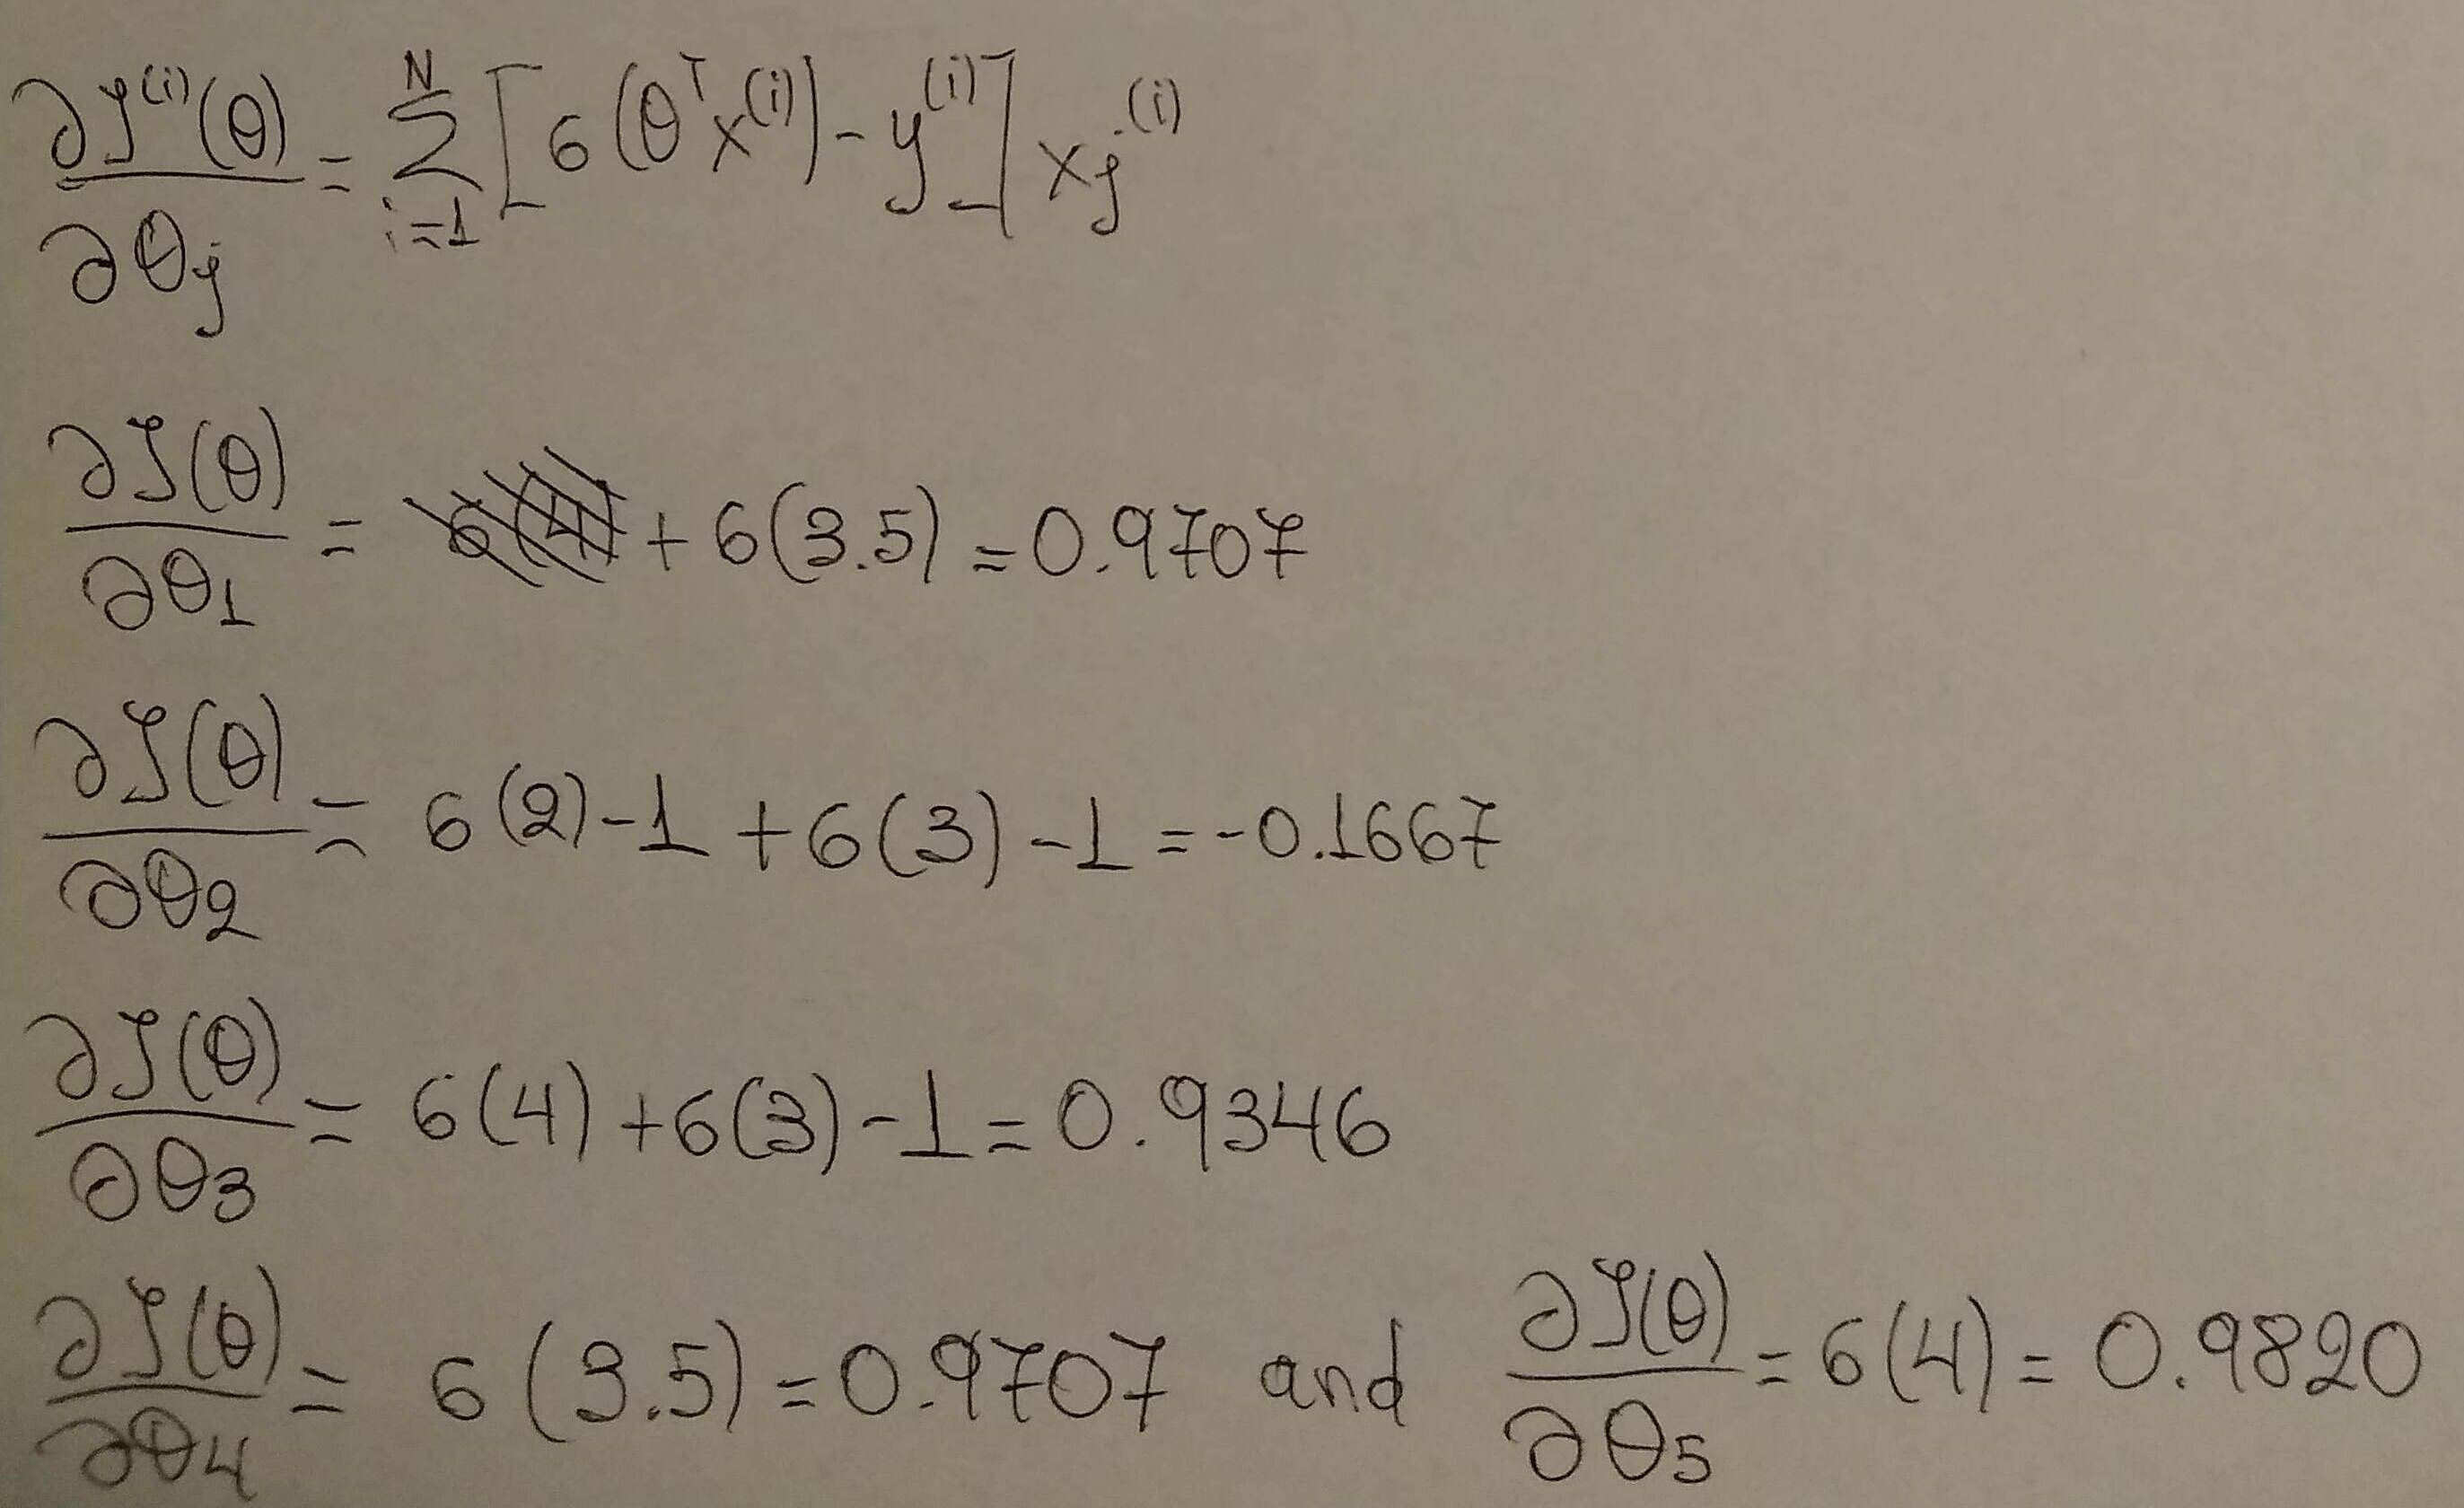 ∂J⁽ⁱ⁾(θ)/∂θj = Σ_{i=1}^{N} [σ(θᵀx⁽ⁱ⁾) - y⁽ⁱ⁾] xj⁽ⁱ⁾
∂J(θ)/∂θ1 = + σ(3.5) = 0.9707
∂J(θ)/∂θ2 = σ(2) - 1 + σ(3) - 1 = -0.1667
∂J(θ)/∂θ3 = σ(4) + σ(3) - 1 = 0.9346
∂J(θ)/∂θ4 = σ(3.5) = 0.9707 and ∂J(θ)/∂θ5 = σ(4) = 0.9820